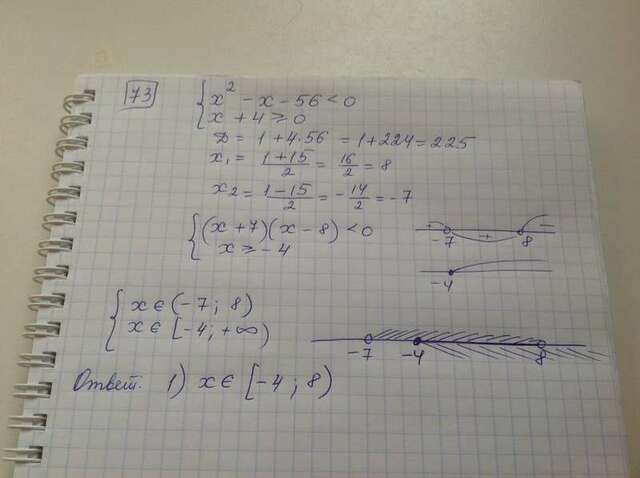 73
{ x² - x - 56 < 0
x + 4 ≥ 0
D = 1 + 4·56 = 1 + 224 = 225
x₁ = (1+15)/2 = 16/2 = 8
x₂ = (1-15)/2 = -14/2 = -7
{ (x+7)(x-8) < 0
x ≥ -4
-7 + 8
-4
{ x ∈ (-7; 8)
x ∈ [-4; +∞)
-7 -4 8
Ответ. 1) x ∈ [-4; 8)